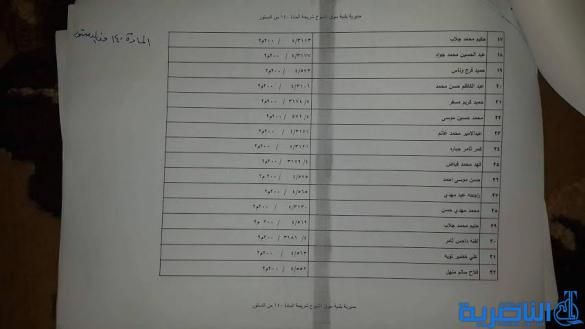 مديرية بلدية سوق الشيوخ شريحة المادة ١٤٠ من الدستور
المادة ١٤٠ من الدستور
١٧ حكيم محمد جلاب ٤/٣١٤٣ / ٢٠٠م٢
١٨ عبد الحسين محمد جواد ٤/٣١٧٧ / ٢٠٠م٢
١٩ حميد فرج وناس ٤/٥٧٣ / ٢٠٠م٢
٢٠ عبد الكاظم حسن محمد ٤/٣١٠٦ / ٢٠٠م٢
٢١ حميد كريم مسفر ٤/ ٣١٧٤ / ٢٠٠م٢
٢٢ محمد حسين موسى ٤/ ٥٧٢ / ٢٠٠م٢
٢٣ عبدالامير محمد غانم ٤/٣١٤١ / ٢٠٠م٢
٢٤ ثامر جباره ٤/٣١٢١ / ٢٠٠م٢
٢٥ فهد محمد فياض ٤/ ٣١٧٢ / ٢٠٠م٢
٢٦ حسن موسى احمد ٤/٥٧٥ / ٢٠٠م٢
٢٧ عبد مهدي ٤/٥٦٥ / ٢٠٠م٢
٢٨ محمد مهدي حسن ٤/٣١٣٠ / ٢٠٠م٢
٢٩ حكيم محمد جلاب ٤/٥٦٩ / ٢٠٠م٢
٣٠ لفته داخس ثامر ٤/ ٣١٨١ / ٢٠٠م٢
٣١ علي خضير تويه ٤/٥٦٣ / ٢٠٠م٢
٣٢ فلاح سالم منهل ٤/٥٥٤ / ٢٠٠م٢
مديرية بلدية سوق الشيوخ شريحة المادة ١٤٠ من الدستور
الناصرية